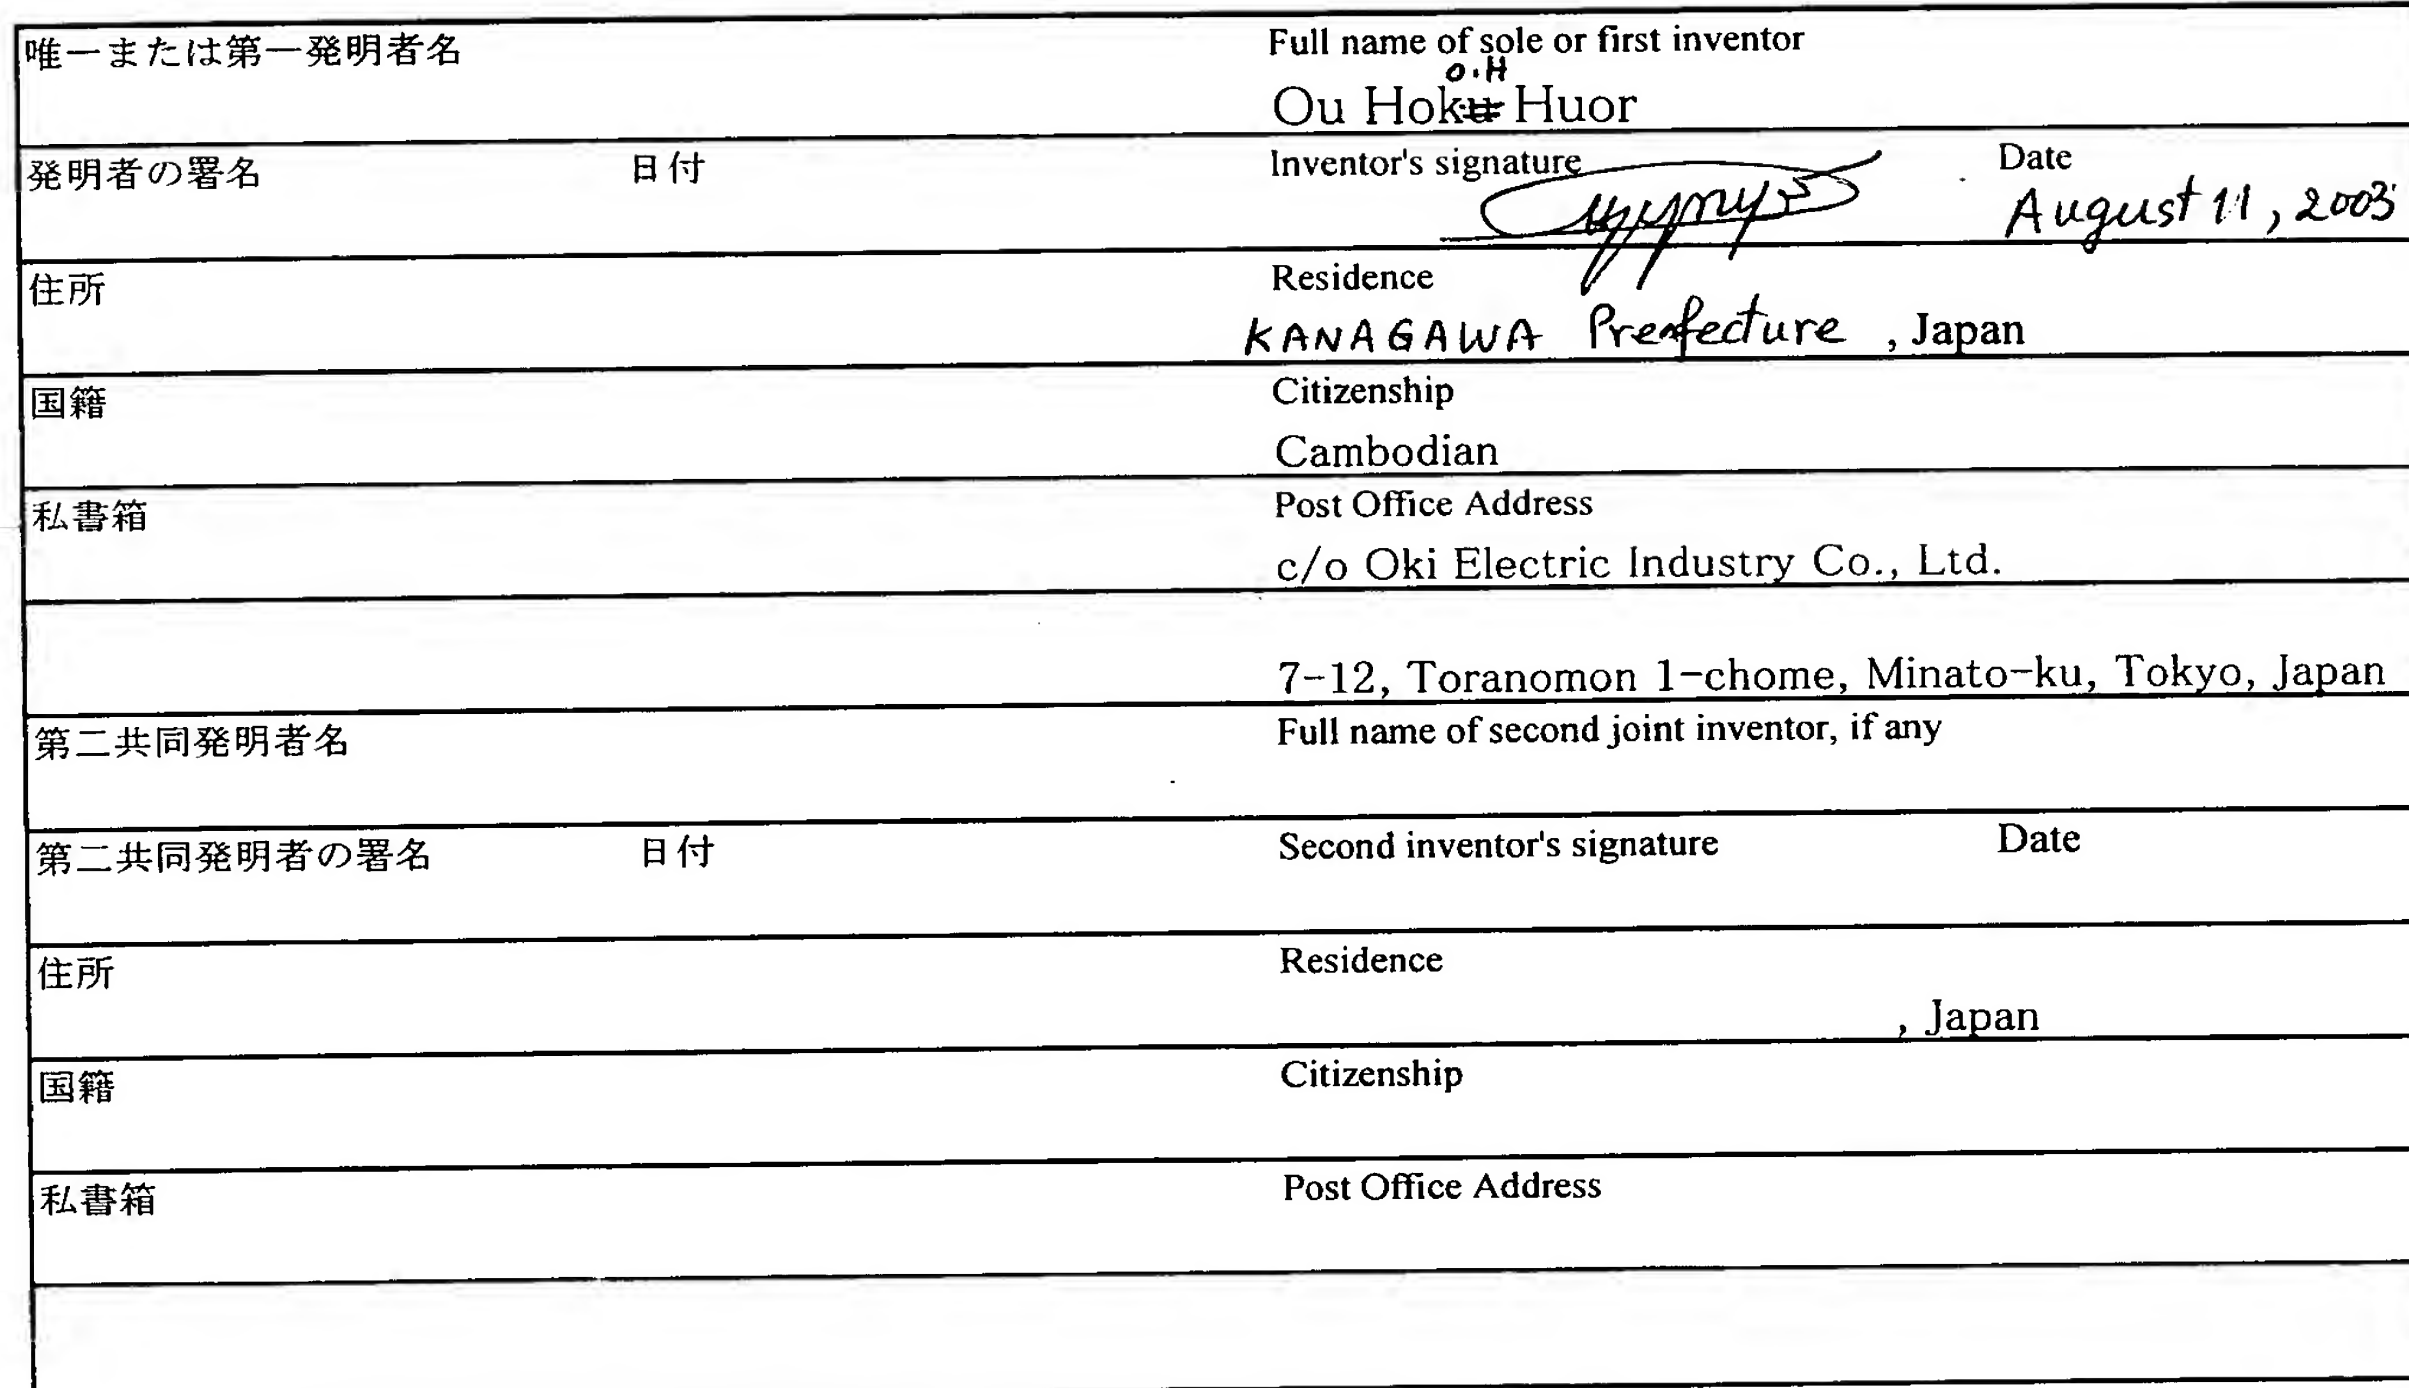 唯一または第一発明者名
Full name of sole or first inventor
O.H
Ou Hoku Huor
発明者の署名 日付
Inventor's signature Date
August 11, 2003
住所
Residence
KANAGAWA Prefecture , Japan
国籍
Citizenship
Cambodian
私書箱
Post Office Address
c/o Oki Electric Industry Co., Ltd.
7-12, Toranomon 1-chome, Minato-ku, Tokyo, Japan
第二共同発明者名
Full name of second joint inventor, if any
第二共同発明者の署名 日付
Second inventor's signature Date
住所
Residence
, Japan
国籍
Citizenship
私書箱
Post Office Address